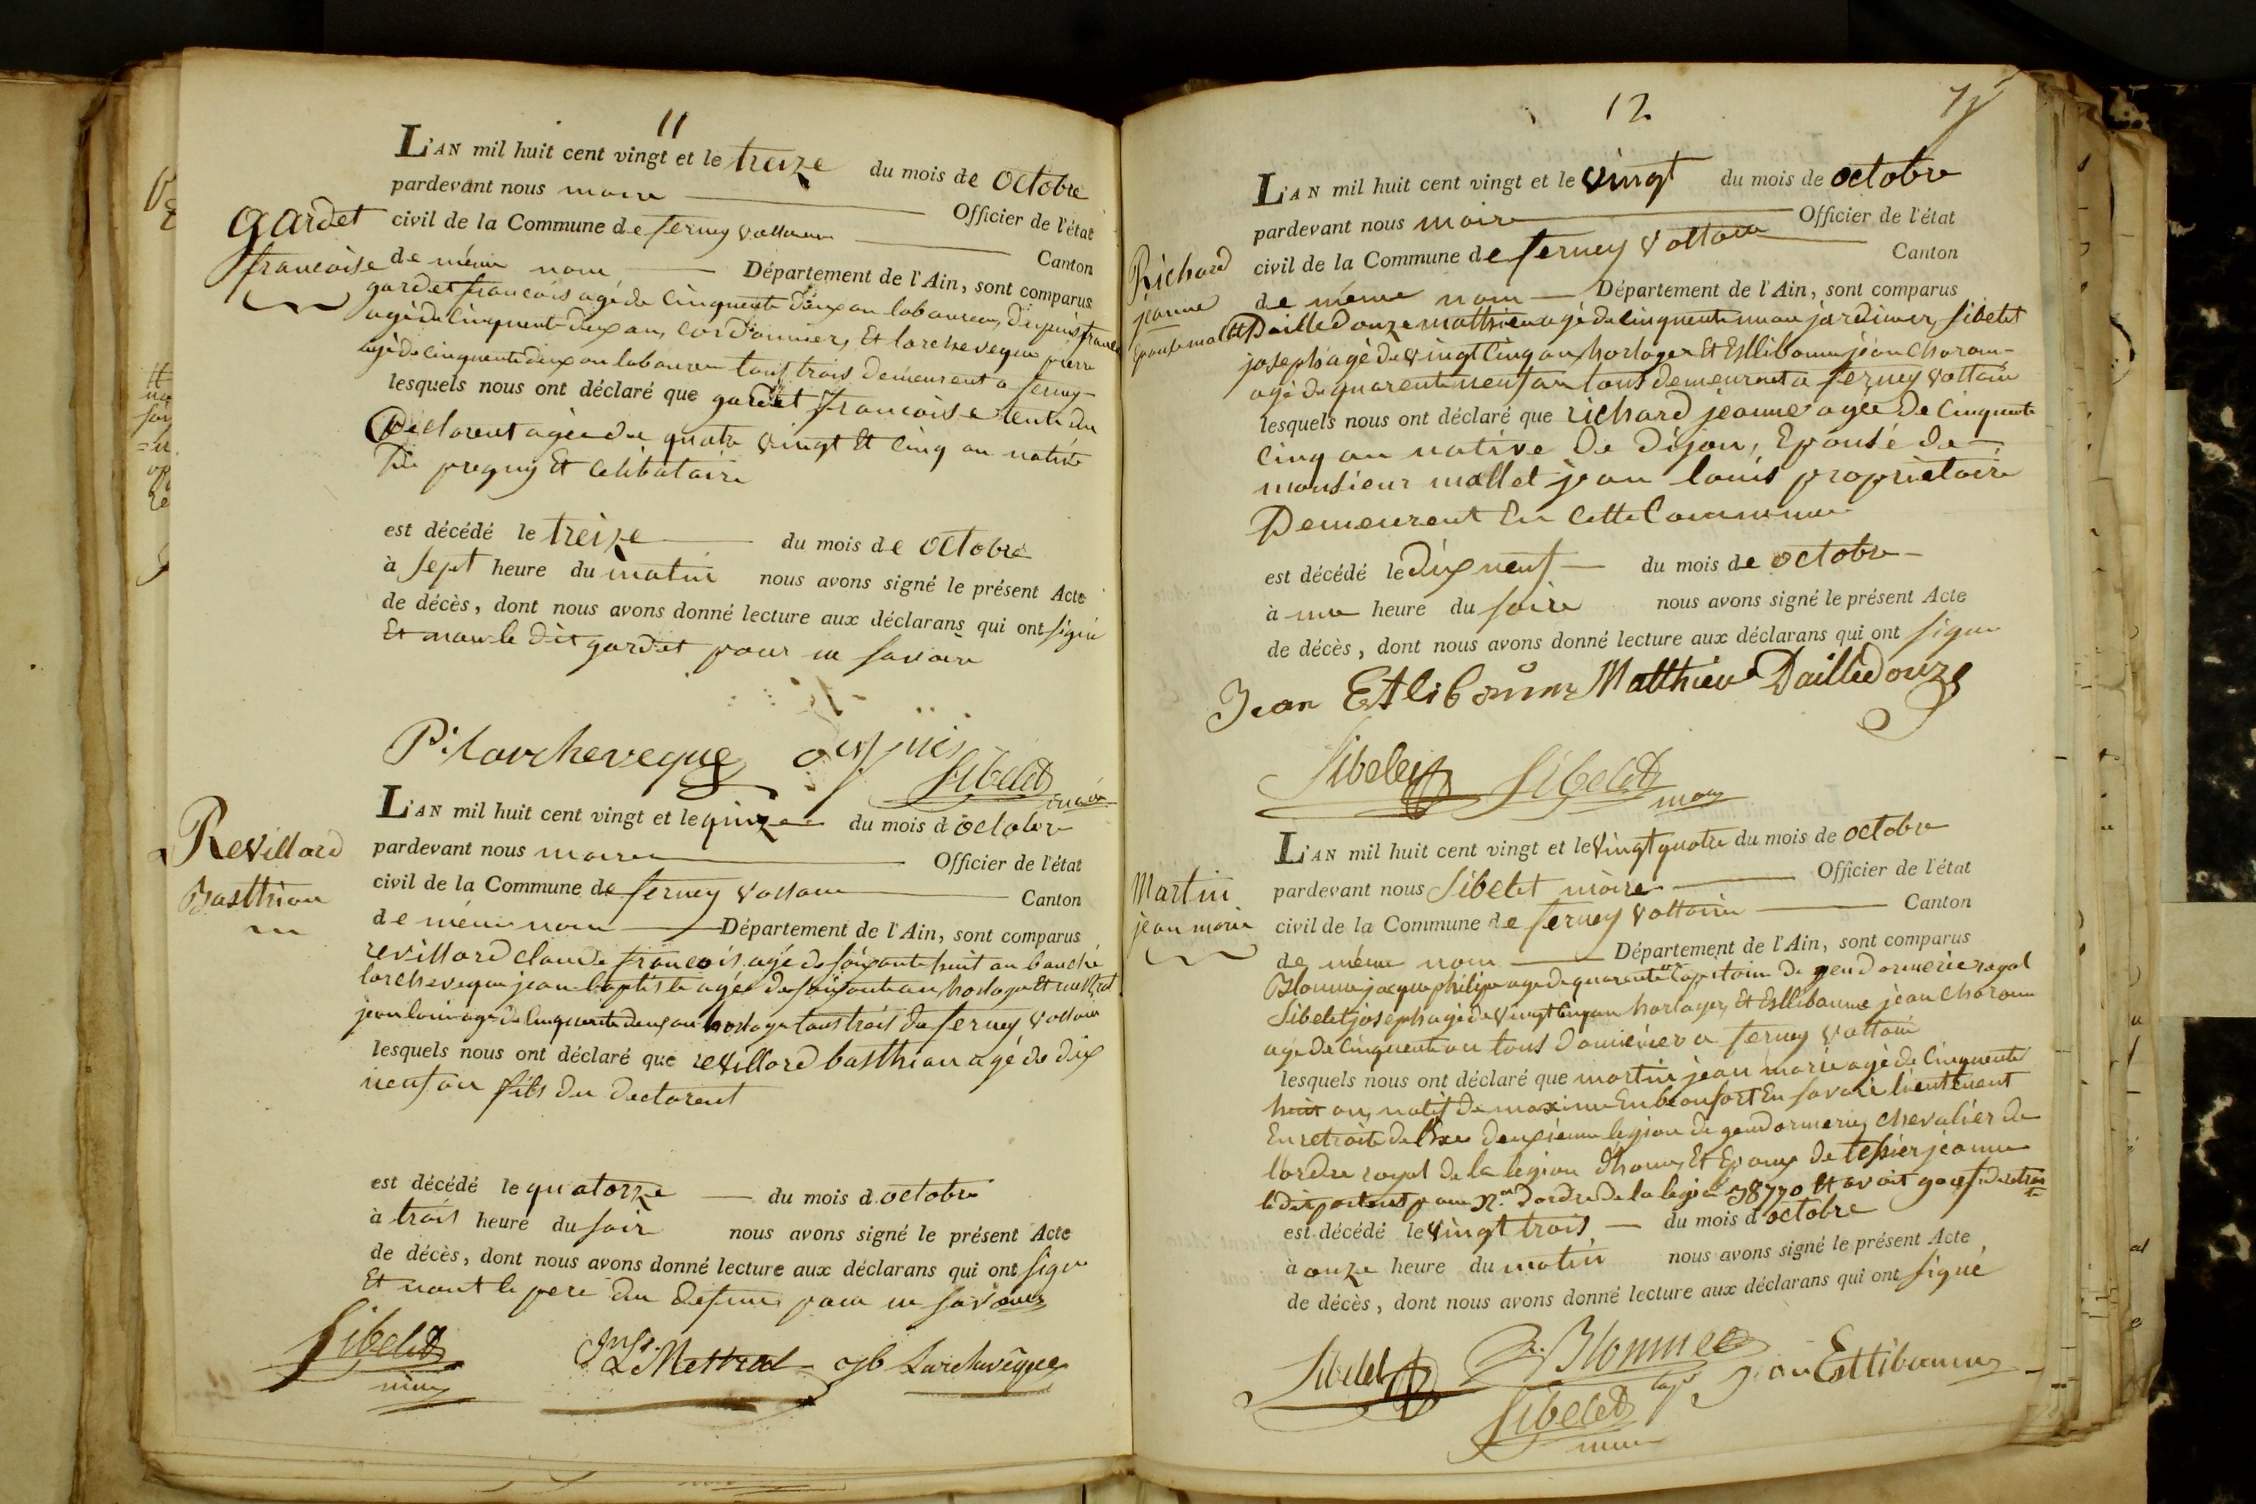 11
L'AN mil huit cent vingt et le treize du mois de octobre
pardevant nous maire Officier de l'état
civil de la Commune de ferney voltaire Canton
de même nom Département de l'Ain, sont comparus
gardet
francoise
gardet francois agé de cinquente deux an laboureur, dupuis
agé de cinquente deux an, cordonnier, Et larcheveque pierre
agé de cinquente deux an laboureur tous trois demeurent a ferney
lesquels nous ont déclaré que gardet francoise tente du
declarent agée de quatre vingt Et cinq an native
de pregny Et celibataire
est décédé le treize du mois de octobre
à sept heure du matin nous avons signé le présent Acte
de décès, dont nous avons donné lecture aux déclarans qui ont signé
Et non le dit gardet pour ne savoir
P. Larcheveque dupuis
Sibelet
maire
L'AN mil huit cent vingt et le quinze du mois d octobre
pardevant nous maire Officier de l'état
civil de la Commune de ferney voltaire Canton
de même nom Département de l'Ain, sont comparus
Revillard
Basthian
revillard claude francois agé de soixante huit an
larcheveque jean baptiste agée de soixante an horloger Et mestral
jean louis agé de cinquente deux an horloger tous trois de ferney voltaire
lesquels nous ont déclaré que revillard basthian agé de dix
neuf an fils du declarent
est décédé le quatorze du mois d octobre
à trois heure du soir nous avons signé le présent Acte
de décès, dont nous avons donné lecture aux déclarans qui ont signé
Et nont le pere du defunt pour ne savoir
Sibelet
maire
Mestral Larchevêque
12
L'AN mil huit cent vingt et le vingt du mois de octobre
pardevant nous maire Officier de l'état
civil de la Commune de ferney voltaire Canton
de même nom Département de l'Ain, sont comparus
Richard
jeanne
Epouse mallet
Dailledouze matthieu agé de cinquente un an jardinier, Sibelet
joseph agé de vingt cinq an horloger Et Estlibaume jean
agé de quarente neuf an tous demeurent a ferney voltaire
lesquels nous ont déclaré que richard jeanne agée de cinquente
cinq an native de Dijon, Epouse de
monsieur mallet jean louis proprietaire
Demeurent En cette Commune
est décédé le dix neuf du mois de octobre
à une heure du soire nous avons signé le présent Acte
de décès, dont nous avons donné lecture aux déclarans qui ont signé
Jean Matthieu Dailledouze
Sibelet Sibelet
maire
L'AN mil huit cent vingt et le vingt quatre du mois de octobre
pardevant nous Sibelet maire Officier de l'état
civil de la Commune de ferney voltaire Canton
de même nom Département de l'Ain, sont comparus
Martin
jean marie
Blonme jacque philipe agé de quarente Capitaine de gendarmerie royal
Sibelet joseph agé de vingt cinq an horloger, Et Estlibaume jean
agé de cinquente an tous a ferney voltaire
lesquels nous ont déclaré que martin jean marie agé de cinquente
huit an, natif de En savoie lieutenent
En retraite de deuxieme legion de gendarmerie, chevalier de
lordre royal de la legion dhoneur Et Epoux de tessier jeanne
le dit portent pour No dordre de la legion 38770 Et avoit
est décédé le vingt trois du mois d octobre
à onze heure du matin nous avons signé le présent Acte
de décès, dont nous avons donné lecture aux déclarans qui ont signé
Sibelet Jean Estlibaume
Sibelet
maire